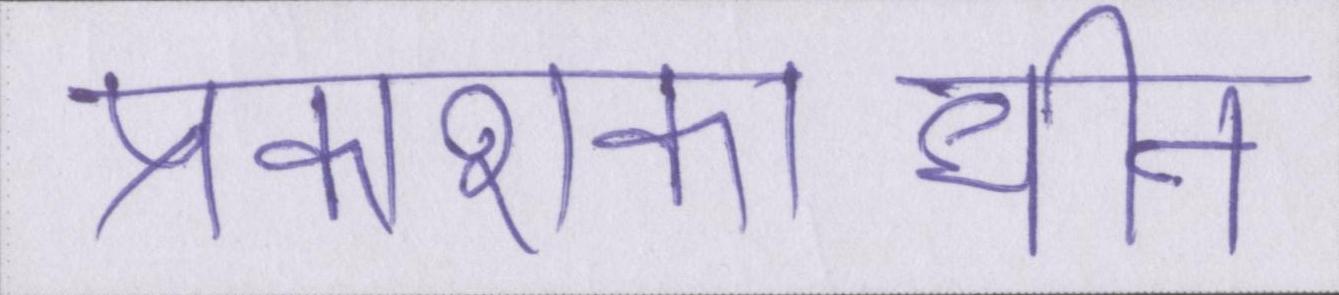 प्रकाशकाधीन